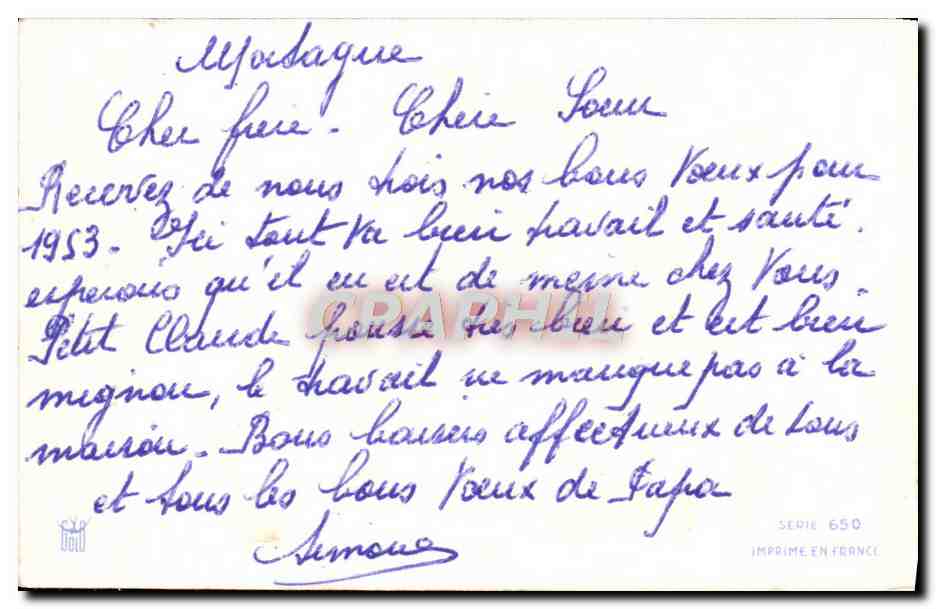 Mortagne
Cher frère - Chère Soeur
Recevez de nous trois nos bons Voeux pour
1953 - Ici tout va bien travail et santé.
esperons qu'il en est de meme chez Vous.
Petit Claude pousse très bien et est bien
mignon, le travail ne manque pas à la
maison. Bons baisers affectueux de tous
et tous les bons Voeux de Papa
Simone
CRAPHIL
SERIE 650
IMPRIME EN FRANCE